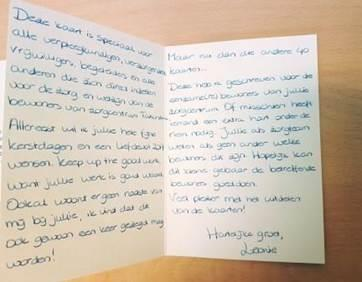 Deze kaart is speciaal voor
alle verpleegkundigen, verzorgenden
vrijwilligers, begeleiders en alle
anderen die zich direct inzetten
voor de zorg en welzijn van de
bewoners van zorgcentrum
Allereerst wil ik jullie hele fijne
kerstdagen en een liefdevol 20
wensen. Keep up the good work,
want jullie werk is goud waard.
Ookal woont er geen naaste van
mij bij jullie, ik vind dat dit
ook gewoon een keer gezegd mag
worden!
Maar nu dan die andere 40
kaarten...
Deze heb ik geschreven voor de
eenzame(re) bewoners van jullie
zorgcentrum. Of misschien heeft
iemand een extra hart onder de
riem nodig. Jullie als zorgteam
weten als geen ander welke
bewoners dit zijn. Hopelijk kan
dit kleine gebaar de betreffende
bewoner goeddoen.
Veel plezier met het uitdelen
van de kaarten!
Hartelijke groet,
Leonie